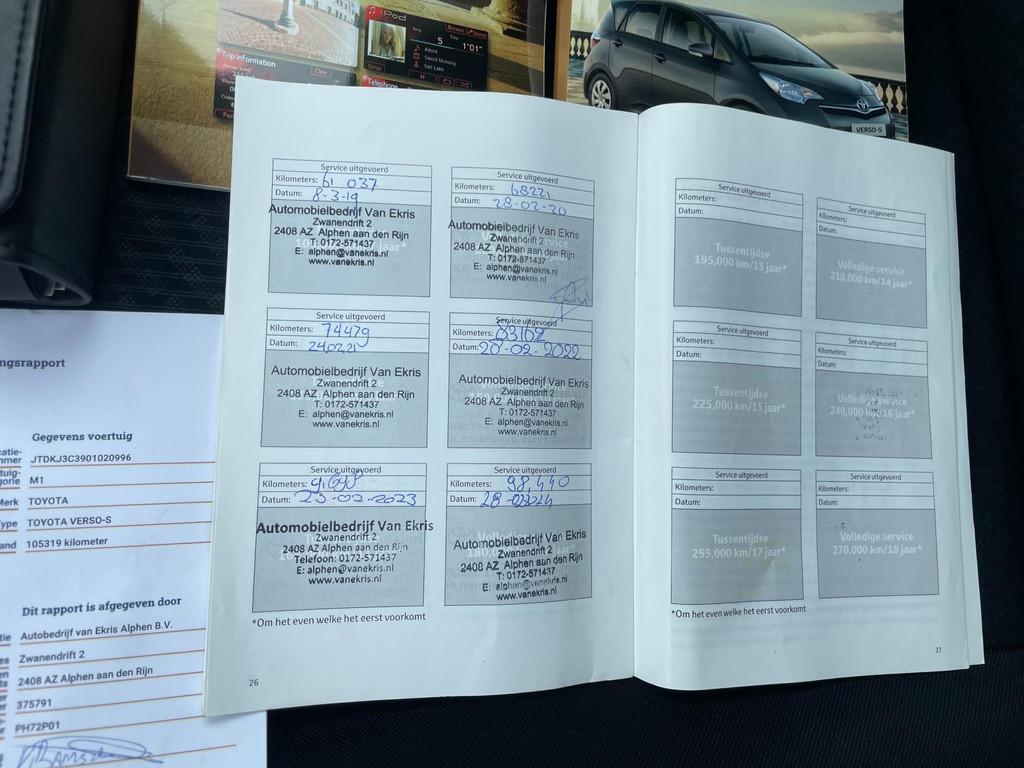 iPod
Song
Time
5
1'01"
Adore
Sweet Morning
Salt Lake
Trip information
Clear
Telephone
VERSO-S
Service uitgevoerd
Kilometers: 61 037
Datum: 8-3-19
Automobielbedrijf Van Ekris
Zwanendrift 2
2408 AZ Alphen aan den Rijn
T: 0172-571437
E: alphen@vanekris.nl
www.vanekris.nl
Service uitgevoerd
Kilometers: 68221
Datum: 28-02-20
Automobielbedrijf Van Ekris
Zwanendrift 2
2408 AZ Alphen aan den Rijn
T: 0172-571437
E: alphen@vanekris.nl
www.vanekris.nl
Service uitgevoerd
Kilometers: 74479
Datum: 240221
Automobielbedrijf Van Ekris
Zwanendrift 2
2408 AZ Alphen aan den Rijn
T: 0172-571437
E: alphen@vanekris.nl
www.vanekris.nl
Service uitgevoerd
Kilometers: 83162
Datum: 20-02-2022
Automobielbedrijf Van Ekris
Zwanendrift 2
2408 AZ Alphen aan den Rijn
T: 0172-571437
E: alphen@vanekris.nl
www.vanekris.nl
Service uitgevoerd
Kilometers:
Datum: 23-02-2023
Automobielbedrijf Van Ekris
Zwanendrift 2
2408 AZ Alphen aan den Rijn
Telefoon: 0172-571437
E: alphen@vanekris.nl
www.vanekris.nl
Service uitgevoerd
Kilometers: 98,440
Datum: 28-022024
Automobielbedrijf Van Ekris
Zwanendrift 2
2408 AZ Alphen aan den Rijn
T: 0172-571437
E: alphen@vanekris.nl
www.vanekris.nl
*Om het even welke het eerst voorkomt
26
Service uitgevoerd
Kilometers:
Datum:
Tussentijdse
195,000 km/13 jaar*
Service uitgevoerd
Kilometers:
Datum:
Volledige service
210,000 km/14 jaar*
Service uitgevoerd
Kilometers:
Datum:
Tussentijdse
225,000 km/15 jaar*
Service uitgevoerd
Kilometers:
Datum:
Volledige service
240,000 km/16 jaar*
Service uitgevoerd
Kilometers:
Datum:
Tussentijdse
255,000 km/17 jaar*
Service uitgevoerd
Kilometers:
Datum:
Volledige service
270,000 km/18 jaar*
*Om het even welke het eerst voorkomt
27
ngsrapport
Gegevens voertuig
JTDKJ3C3901020996
M1
Merk TOYOTA
Type TOYOTA VERSO-S
and 105319 kilometer
Dit rapport is afgegeven door
Autobedrijf van Ekris Alphen B.V.
Zwanendrift 2
2408 AZ Alphen aan den Rijn
375791
PH72P01